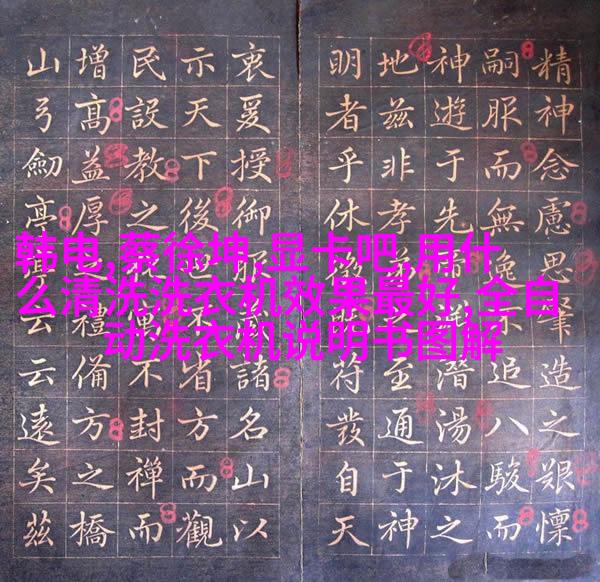 韩电,蔡徐坤,显卡吧,用什
么清洗洗衣机效果最好,全自
动洗衣机说明书图解
精神念慮思造之艱懍
嗣服而無逸追八駿而
神遊于先帝潛湯沐之
地茲非孝弟至通于神
明者乎休徵符發自天
衷爰授御服諸名山以
示天下後世不省方而觀
民設教之不封禪而
增高益厚禮俻方之橋
山弓劍亭亭云云遠矣茲